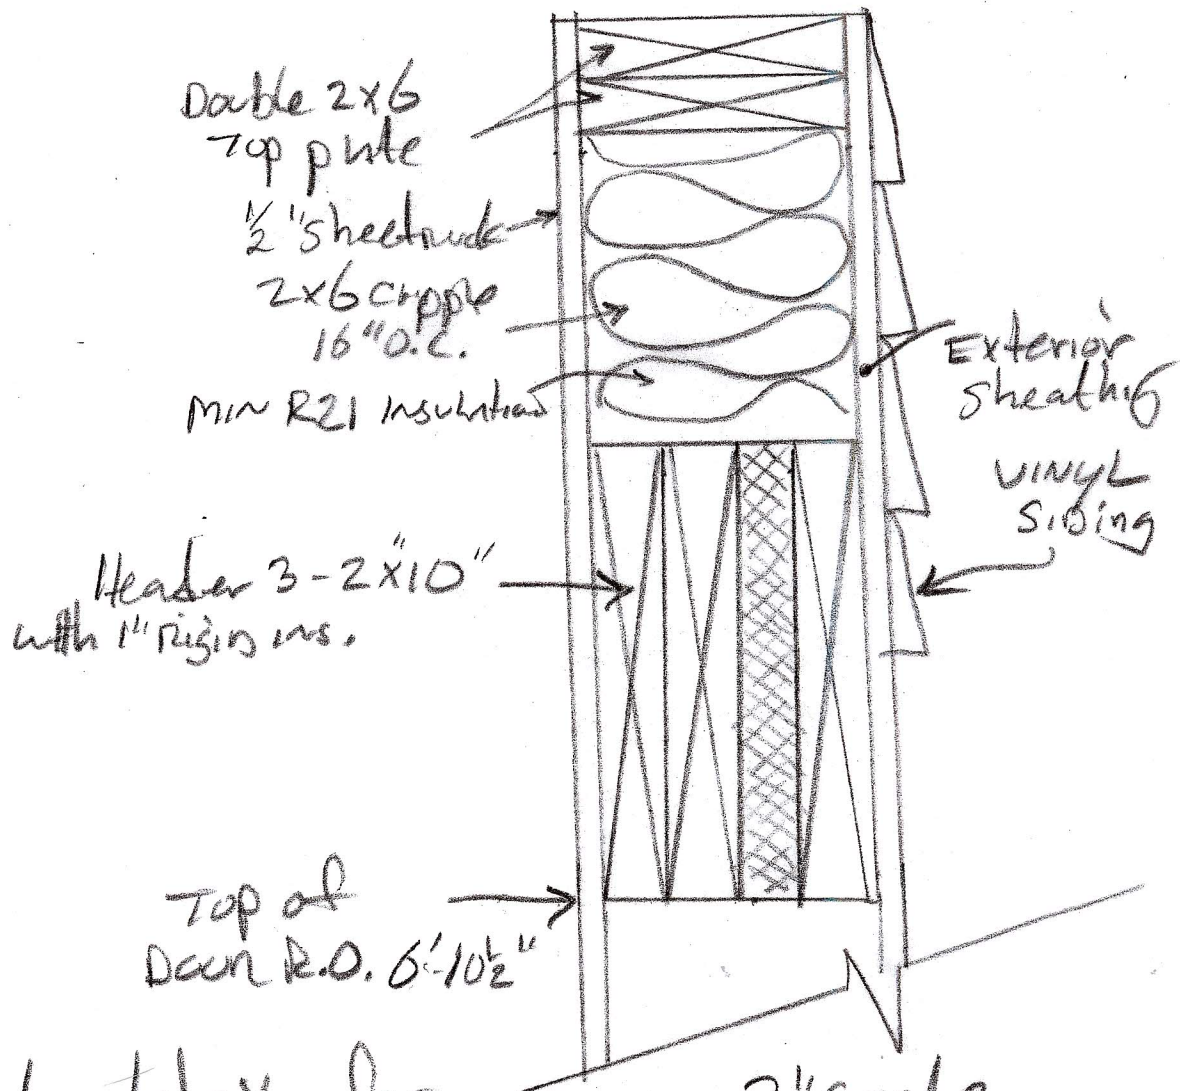 Double 2x6
Top plate
1/2" Sheetrock
2x6 cripple
16" O.C.
MIN R21 Insulation
Exterior
Sheathig
VINYL
Siding
Header 3-2"x10"
with 1" Rigid ins.
Top of
Door R.O. 6'-10 1/2"